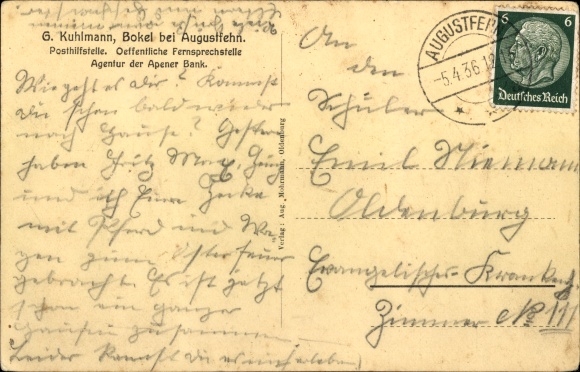 G. Kuhlmann, Bokel bei Augustfehn.
Posthilfstelle. Oeffentliche Fernsprechstelle
Agentur der Apener Bank.
Wie geht es dir? Kannst
du schon bald wieder
nach Hause? Gestern
haben Fritz
und ich eine Hecke
mit Pferd und Wa-
gen zum Osterfeuer
gebracht. Es ist jetzt
schon ein ganzer
Haufen zusammen
Leider kannst du es mit erleben)
Verlag: Aug. Mohrmann, Oldenburg
AUGUSTFEHN
-5.4.36
6 6
Deutsches Reich
An
den
Schüler
Emil Niemann
Oldenburg
Evangelisches Krankenh.
Zimmer No 111